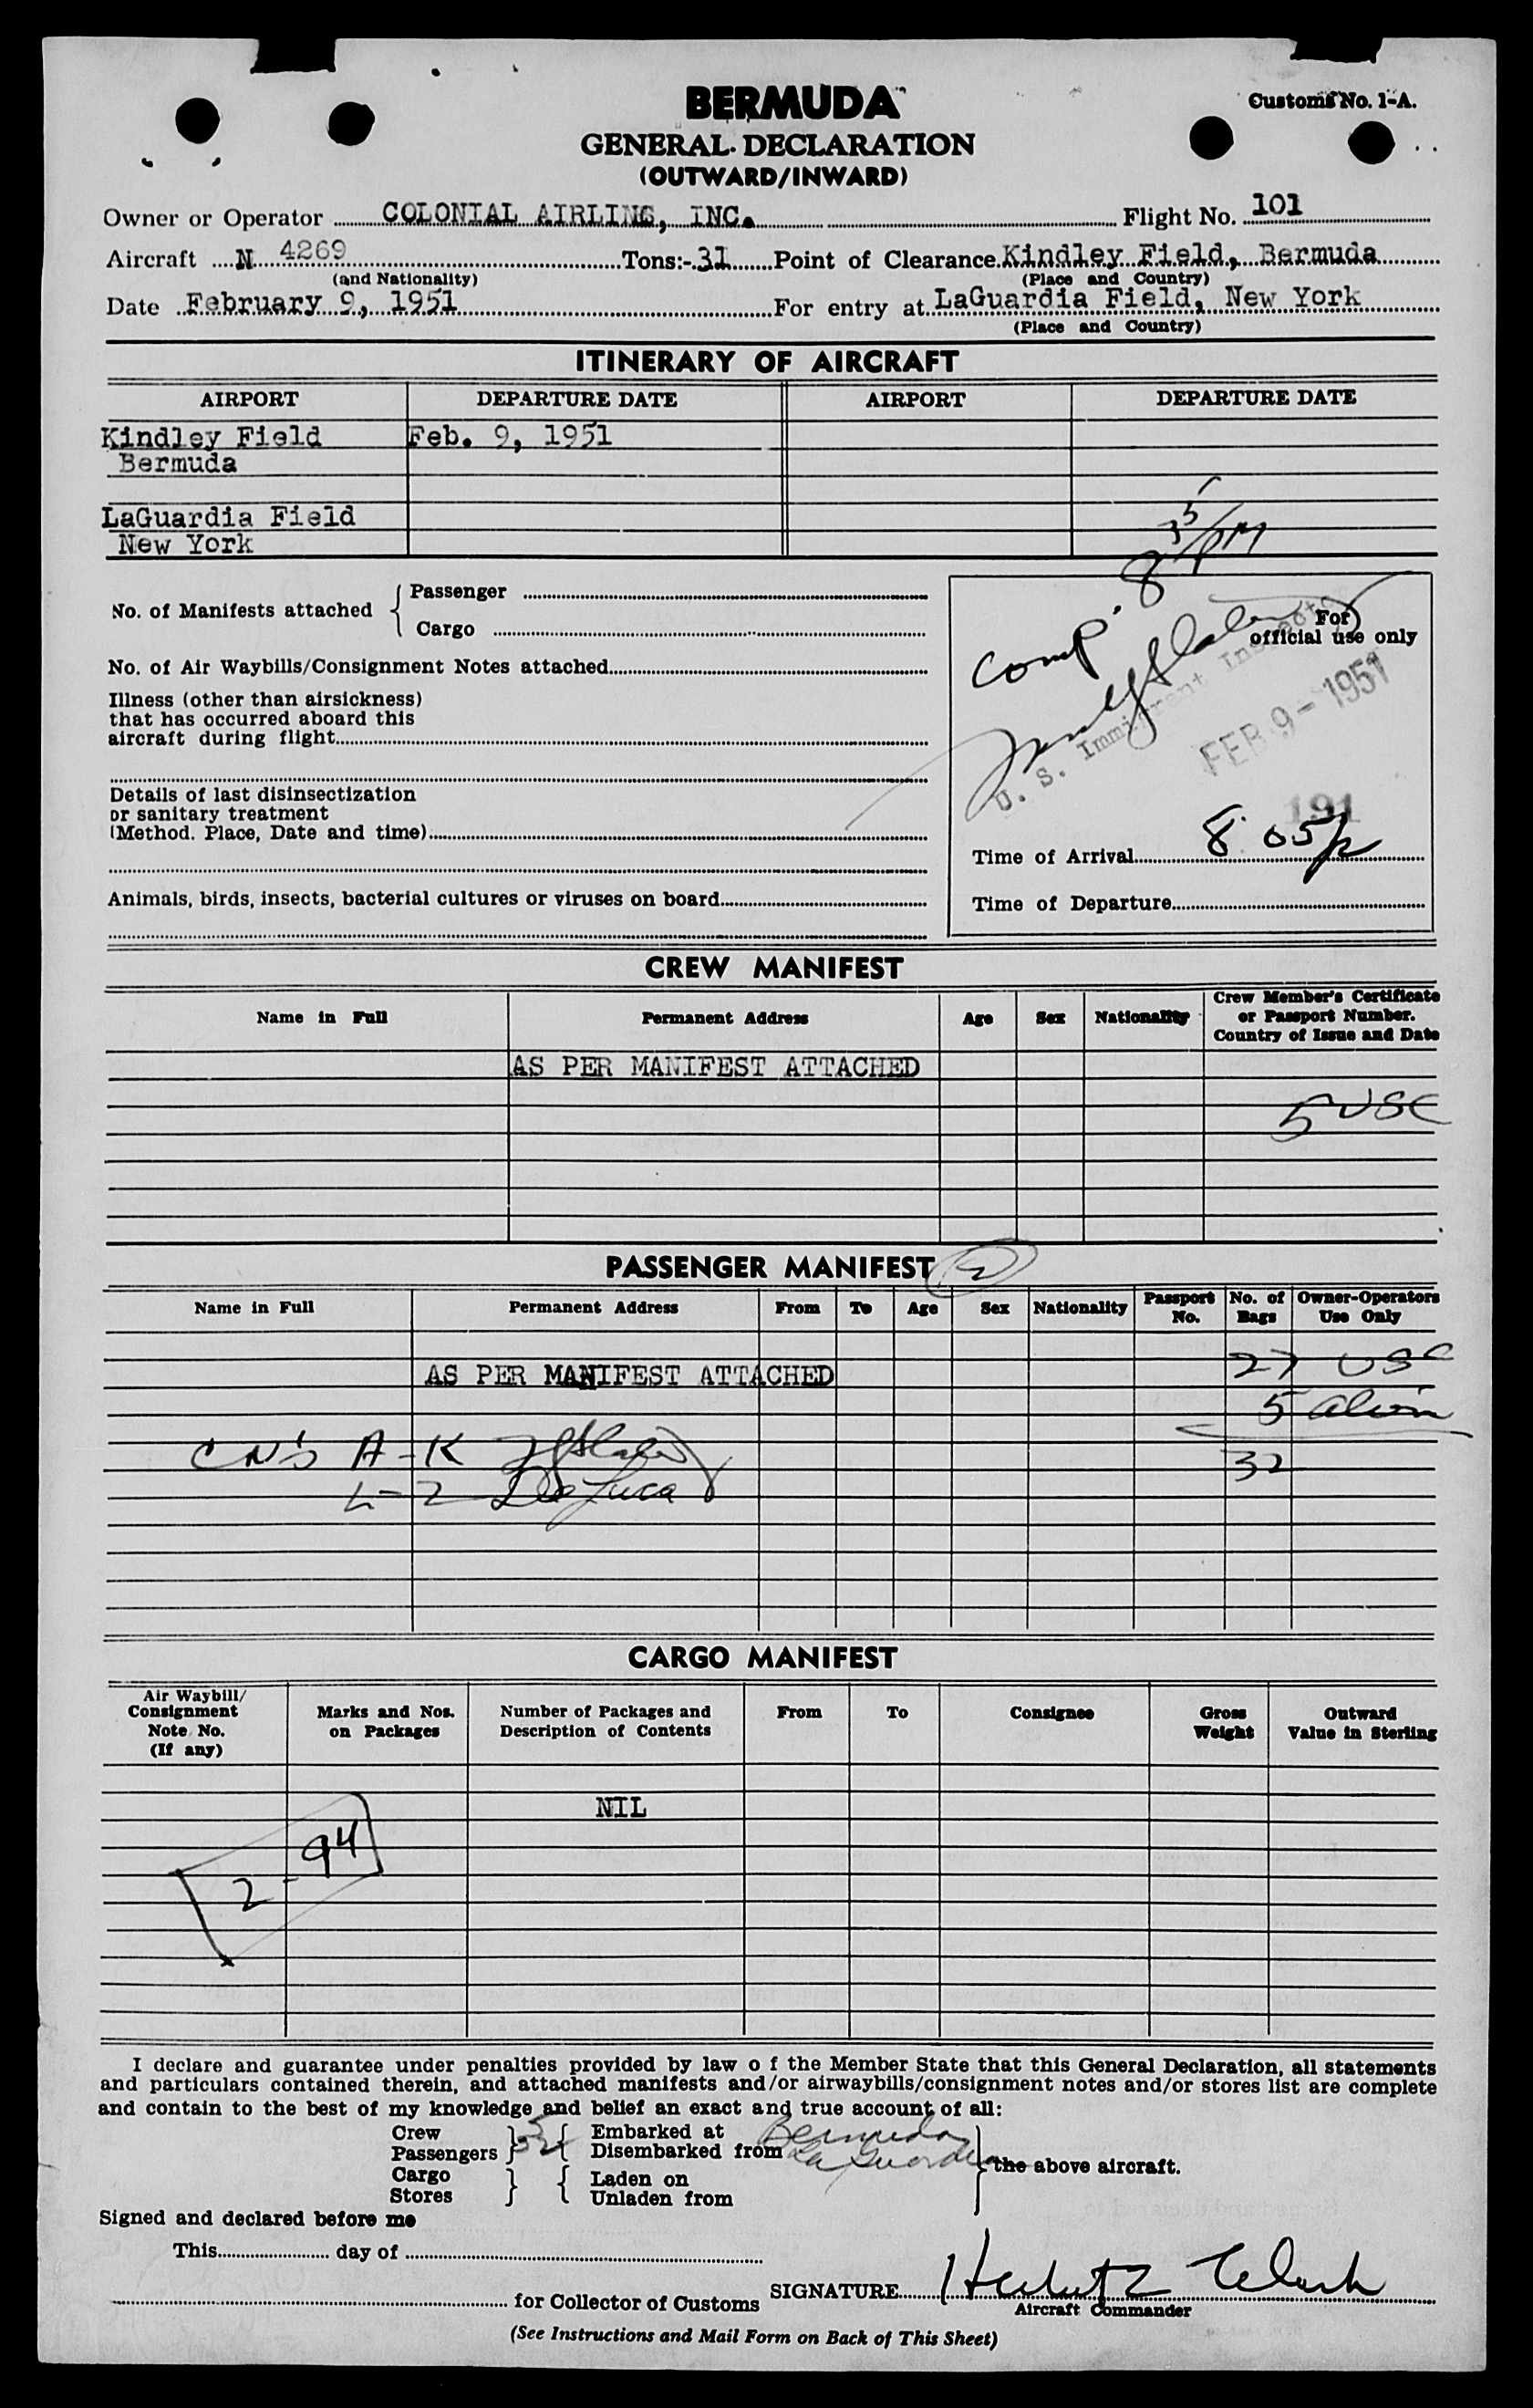 BERMUDA
Customs No. 1-A.
GENERAL DECLARATION
(OUTWARD/INWARD)
Owner or Operator COLONIAL AIRLINES, INC. Flight No. 101
Aircraft N 4269 Tons:- 31 Point of Clearance Kindley Field, Bermuda
(and Nationality) (Place and Country)
Date February 9, 1951 For entry at LaGuardia Field, New York
(Place and Country)
ITINERARY OF AIRCRAFT
AIRPORT DEPARTURE DATE AIRPORT DEPARTURE DATE
Kindley Field Feb. 9, 1951
Bermuda
LaGuardia Field
New York
8 35 PM
No. of Manifests attached { Passenger
Cargo
comp.
For
official use only
No. of Air Waybills/Consignment Notes attached
Illness (other than airsickness)
that has occurred aboard this
aircraft during flight
U. S. Immigrant Inspector
FEB 9 - 1951
191
Details of last disinsectization
or sanitary treatment
(Method. Place, Date and time)
Time of Arrival 8 05p
Animals, birds, insects, bacterial cultures or viruses on board
Time of Departure
CREW MANIFEST
Name in Full Permanent Address Age Sex Nationality Crew Member's Certificate
or Passport Number.
Country of Issue and Date
AS PER MANIFEST ATTACHED
5 USC
PASSENGER MANIFEST 2
Name in Full Permanent Address From To Age Sex Nationality Passport No. No. of Bags Owner-Operators Use Only
27 USC
AS PER MANIFEST ATTACHED
5 alien
CN's A-K
32
L-Z De Luca
CARGO MANIFEST
Air Waybill/
Consignment
Note No.
(If any)
Marks and Nos.
on Packages
Number of Packages and
Description of Contents
From To Consignee Gross
Weight
Outward
Value in Sterling
NIL
2-94
I declare and guarantee under penalties provided by law o f the Member State that this General Declaration, all statements
and particulars contained therein, and attached manifests and/or airwaybills/consignment notes and/or stores list are complete
and contain to the best of my knowledge and belief an exact and true account of all:
Crew } 5 { Embarked at Bermuda
Passengers } 32 { Disembarked from La Guardia } the above aircraft.
Cargo } { Laden on
Stores } { Unladen from
Signed and declared before me
This day of
for Collector of Customs SIGNATURE
Aircraft Commander
(See Instructions and Mail Form on Back of This Sheet)